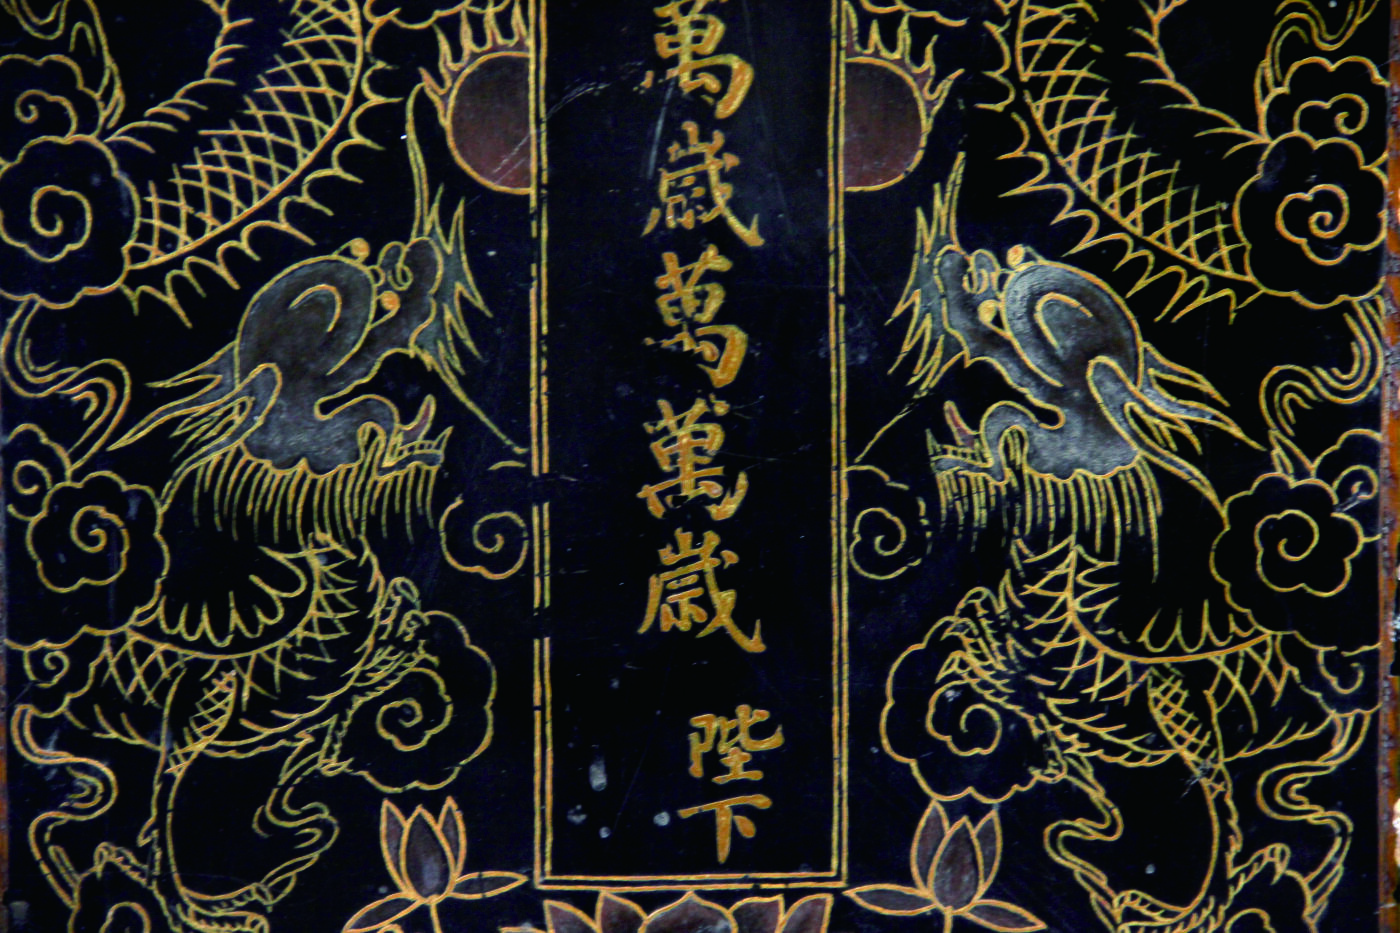 萬歲萬萬歲陛下